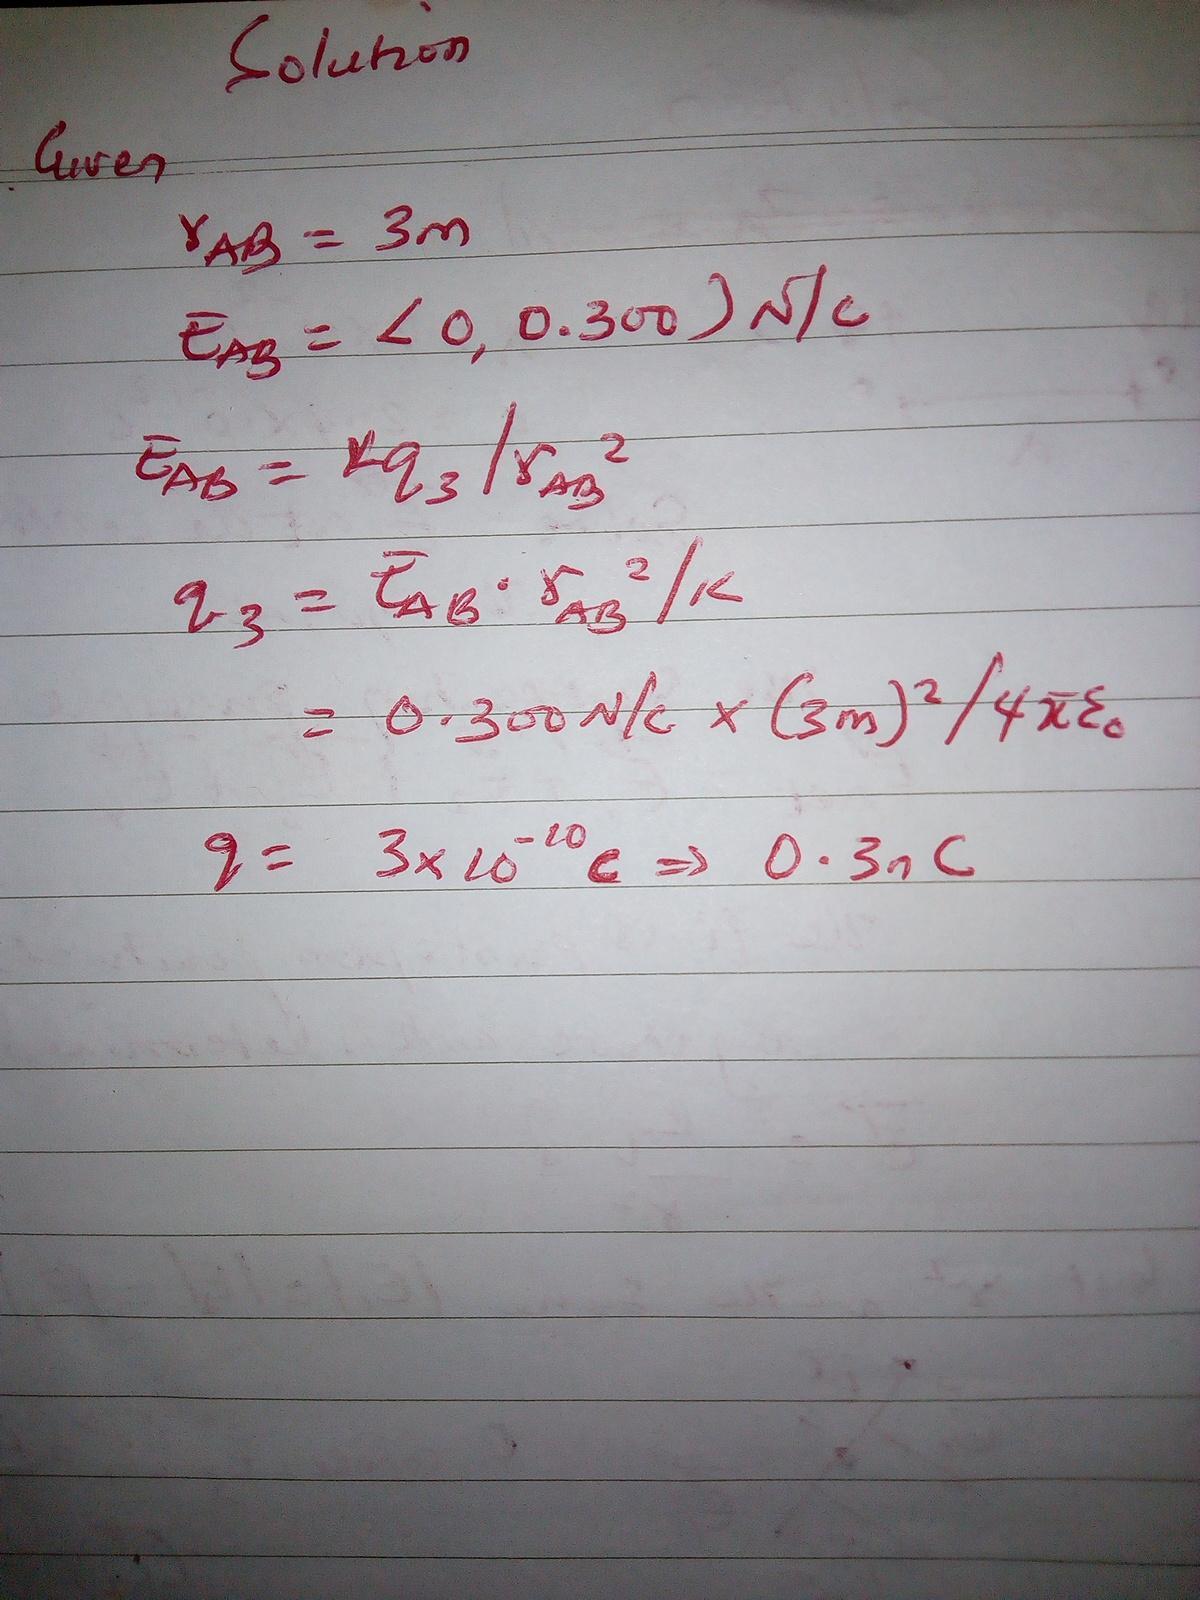 Solution
Given
r_AB = 3m
Ē_AB = < 0, 0.300 ) N/C
Ē_AB = kq₃ / r_AB²
q₃ = Ē_AB · r_AB² / k
= 0.300 N/C × (3m)² / 4πε₀
q = 3×10⁻¹⁰ C ⇒ 0.3nC